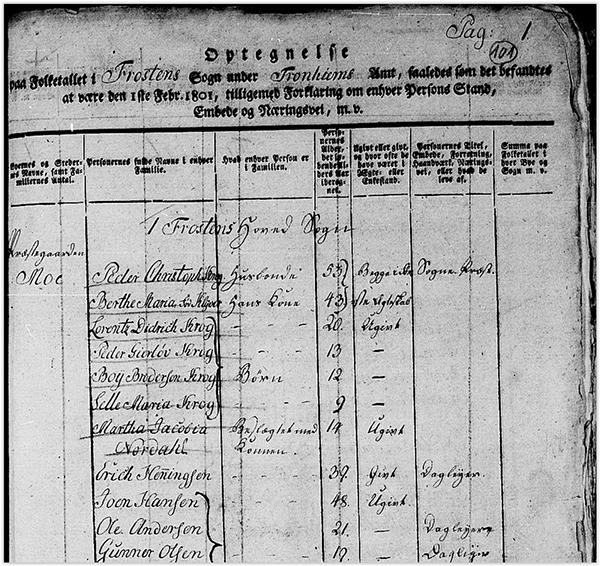 Pag: 1
101
Optegnelse
paa Folketallet i Frostens Sogn under Tronhiems Amt, saaledes som det befandtes
at være den 1ste Febr. 1801, tilligemed Forklaring om enhver Persons Stand,
Embede og Næringsvei, m. v.
Byernes og Stedernes Navne, samt Familiernes Antal. Personernes fulde Navne i enhver Familie. Hvad enhver Person er i Familien. Personernes Alder, det løbende Alders Aar iberegnet. Ugivt eller givt, og hvor ofte de have været i Ægte- eller Enkestand. Personernes Titel, Embede, Forretning, Haandværk, Næringsvei, eller hvad de leve af. Summa paa Folketallet i hver Bye og Sogn m. v.
1 Frostens Hoved Sogn
Præstegaarden
Moe Peder Christoph Krog Husbonde 53 Begge i Sogne Præst.
Berthe Maria Hans Kone 43 Ægteskab
Lorentz Didrich Krog - - - 20. Ugivt
Peder Giørløv Krog - - - 13 —
Boy Brodersen Krog Børn 12 —
Selle Maria Krog - - - 9 —
Martha Jacobia Beslægtet med 14 Ugivt
Nordahl Konnen.
Erich Heningsen - - - 39. Givt Dagleyer.
Joen Hansen - - - 48. Ugivt.
Ole Andersen - - - 21. — Dagleyer
Gunner Olsen - - - 19. — Dagleyer